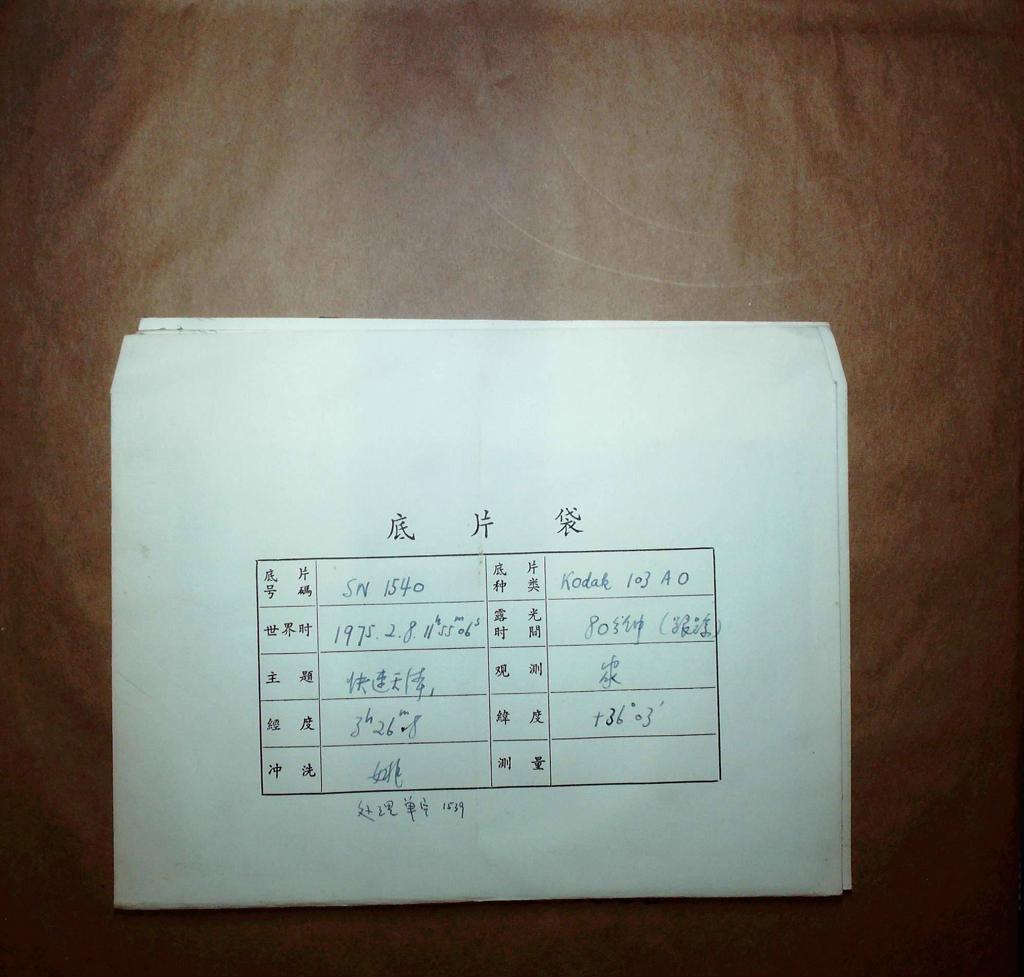 底片袋
底片号碼 SN 1540 底片种类 Kodak 103 AO
世界时 1975.2.8. 11ʰ55ᵐ06ˢ 露光时間 80分钟 (跟踪)
主題 快速天体, 观測
經度 3ʰ26ᵐ.8 緯度 +36°03′
冲洗 測量
处理单号 1539